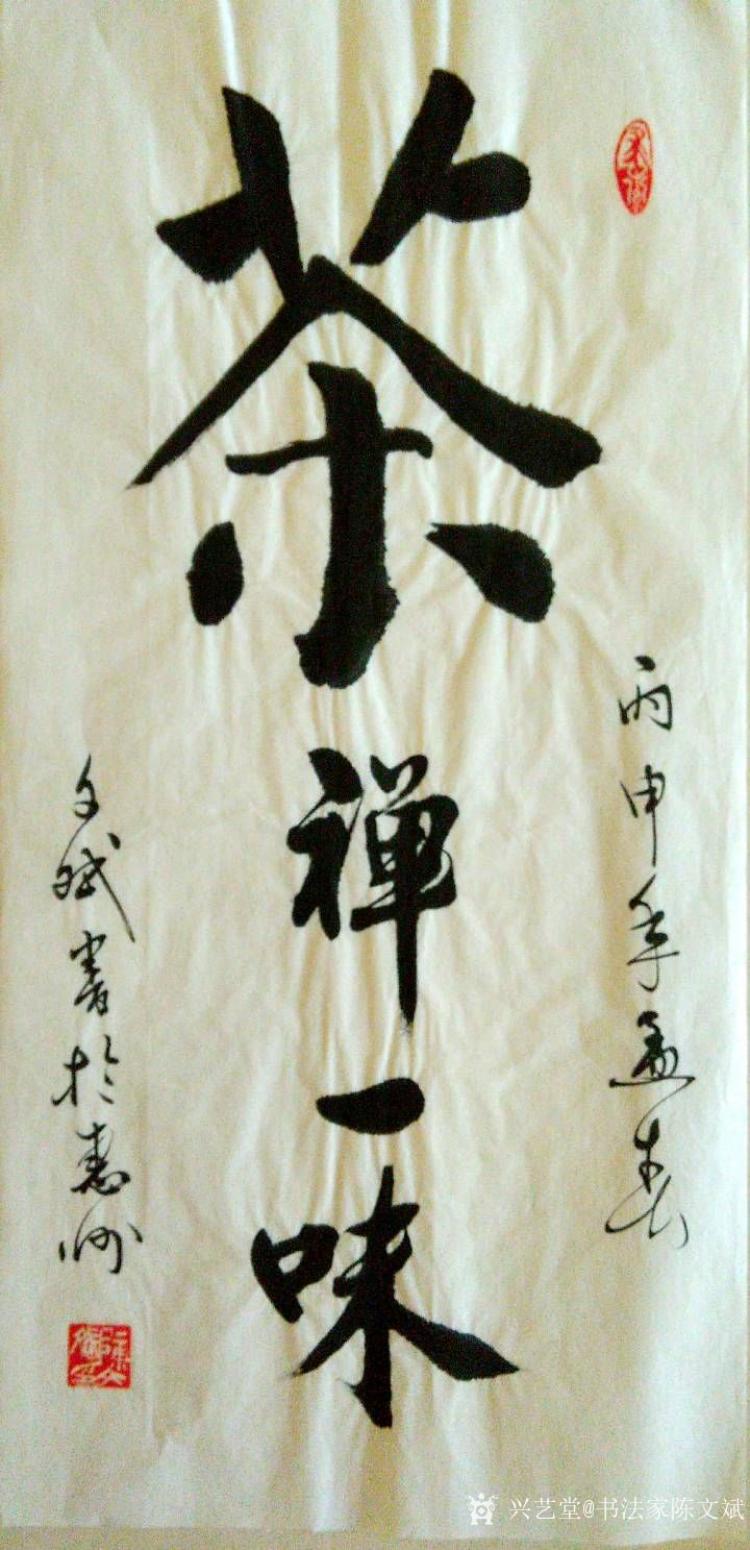 茶禅一味
丙申年孟春
文斌書於惠州
兴艺堂@书法家陈文斌